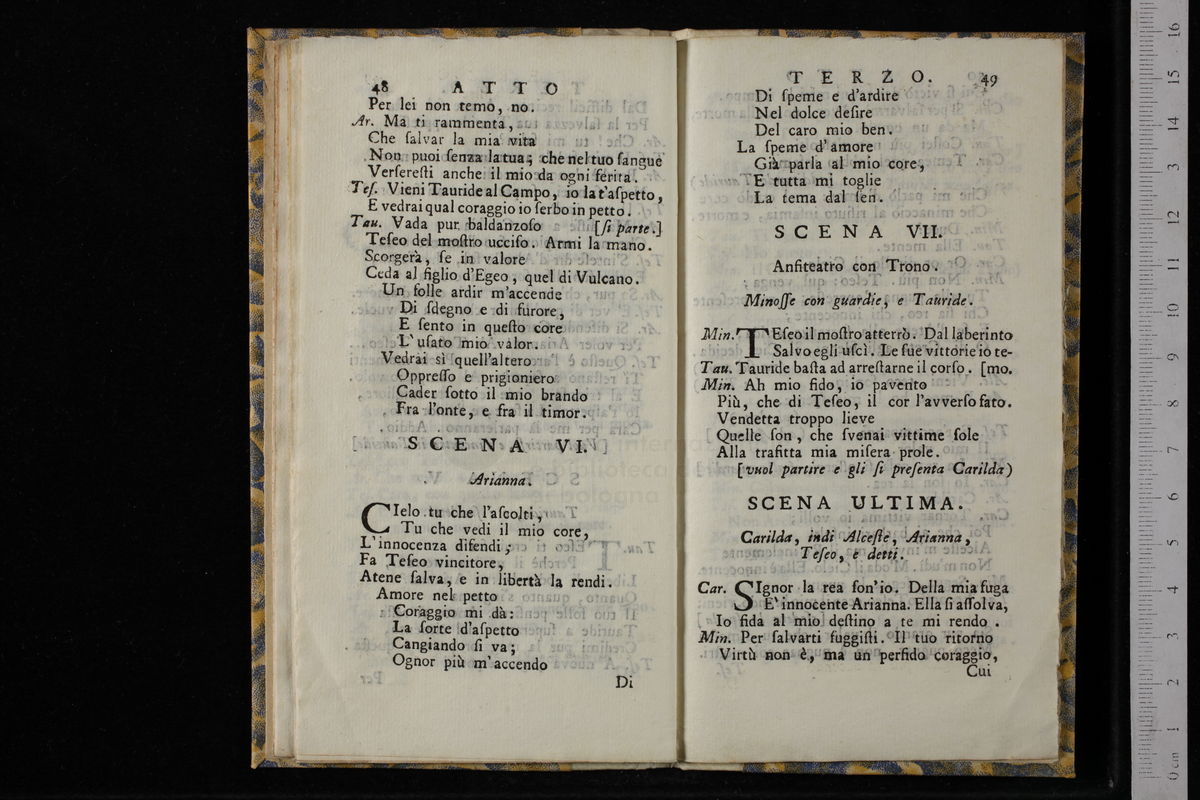 48 ATTO
Per lei non temo, no.
Ar. Ma ti rammenta,
Che ſalvar la mia vita
Non puoi ſenza la tua; che nel tuo ſangue
Verſereſti anche il mio da ogni ferita.
Teſ. Vieni Tauride al Campo, io la t'aſpetto,
E vedrai qual coraggio io ſerbo in petto.
Tau. Vada pur baldanzoſo [ſi parte.]
Teſeo del moſtro ucciſo. Armi la mano.
Scorgerà, ſe in valore
Ceda al figlio d'Egeo, quel di Vulcano.
Un folle ardir m'accende
Di ſdegno e di furore,
E ſento in queſto core
L'uſato mio valor.
Vedrai sì quell'altero
Oppreſſo e prigioniero
Cader ſotto il mio brando
Fra l'onte, e fra il timor.
SCENA VI.
Arianna.
CIelo tu che l'aſcolti,
Tu che vedi il mio core,
L'innocenza difendi;
Fa Teſeo vincitore,
Atene ſalva, e in libertà la rendi.
Amore nel petto
Coraggio mi dà:
La ſorte d'aſpetto
Cangiando ſi va;
Ognor più m'accendo
Di
TERZO. 49
Di ſpeme e d'ardire
Nel dolce deſire
Del caro mio ben.
La ſpeme d'amore
Già parla al mio core,
E tutta mi toglie
La tema dal ſen.
SCENA VII.
Anfiteatro con Trono.
Minoſſe con guardie, e Tauride.
Min. TEſeo il moſtro atterrò. Dal laberinto
Salvo egli uſcì. Le ſue vittorie io te-
Tau. Tauride baſta ad arreſtarne il corſo. [mo.
Min. Ah mio fido, io pavento
Più, che di Teſeo, il cor l'avverſo fato.
Vendetta troppo lieve
Quelle ſon, che ſvenai vittime ſole
Alla trafitta mia miſera prole.
[vuol partire e gli ſi preſenta Carilda)
SCENA ULTIMA.
Carilda, indi Alceſte, Arianna,
Teſeo, e detti.
Car. SIgnor la rea ſon'io. Della mia fuga
E' innocente Arianna. Ella ſi aſſolva,
Io fida al mio deſtino a te mi rendo.
Min. Per ſalvarti fuggiſti. Il tuo ritorno
Virtù non è, ma un perfido coraggio,
Cui